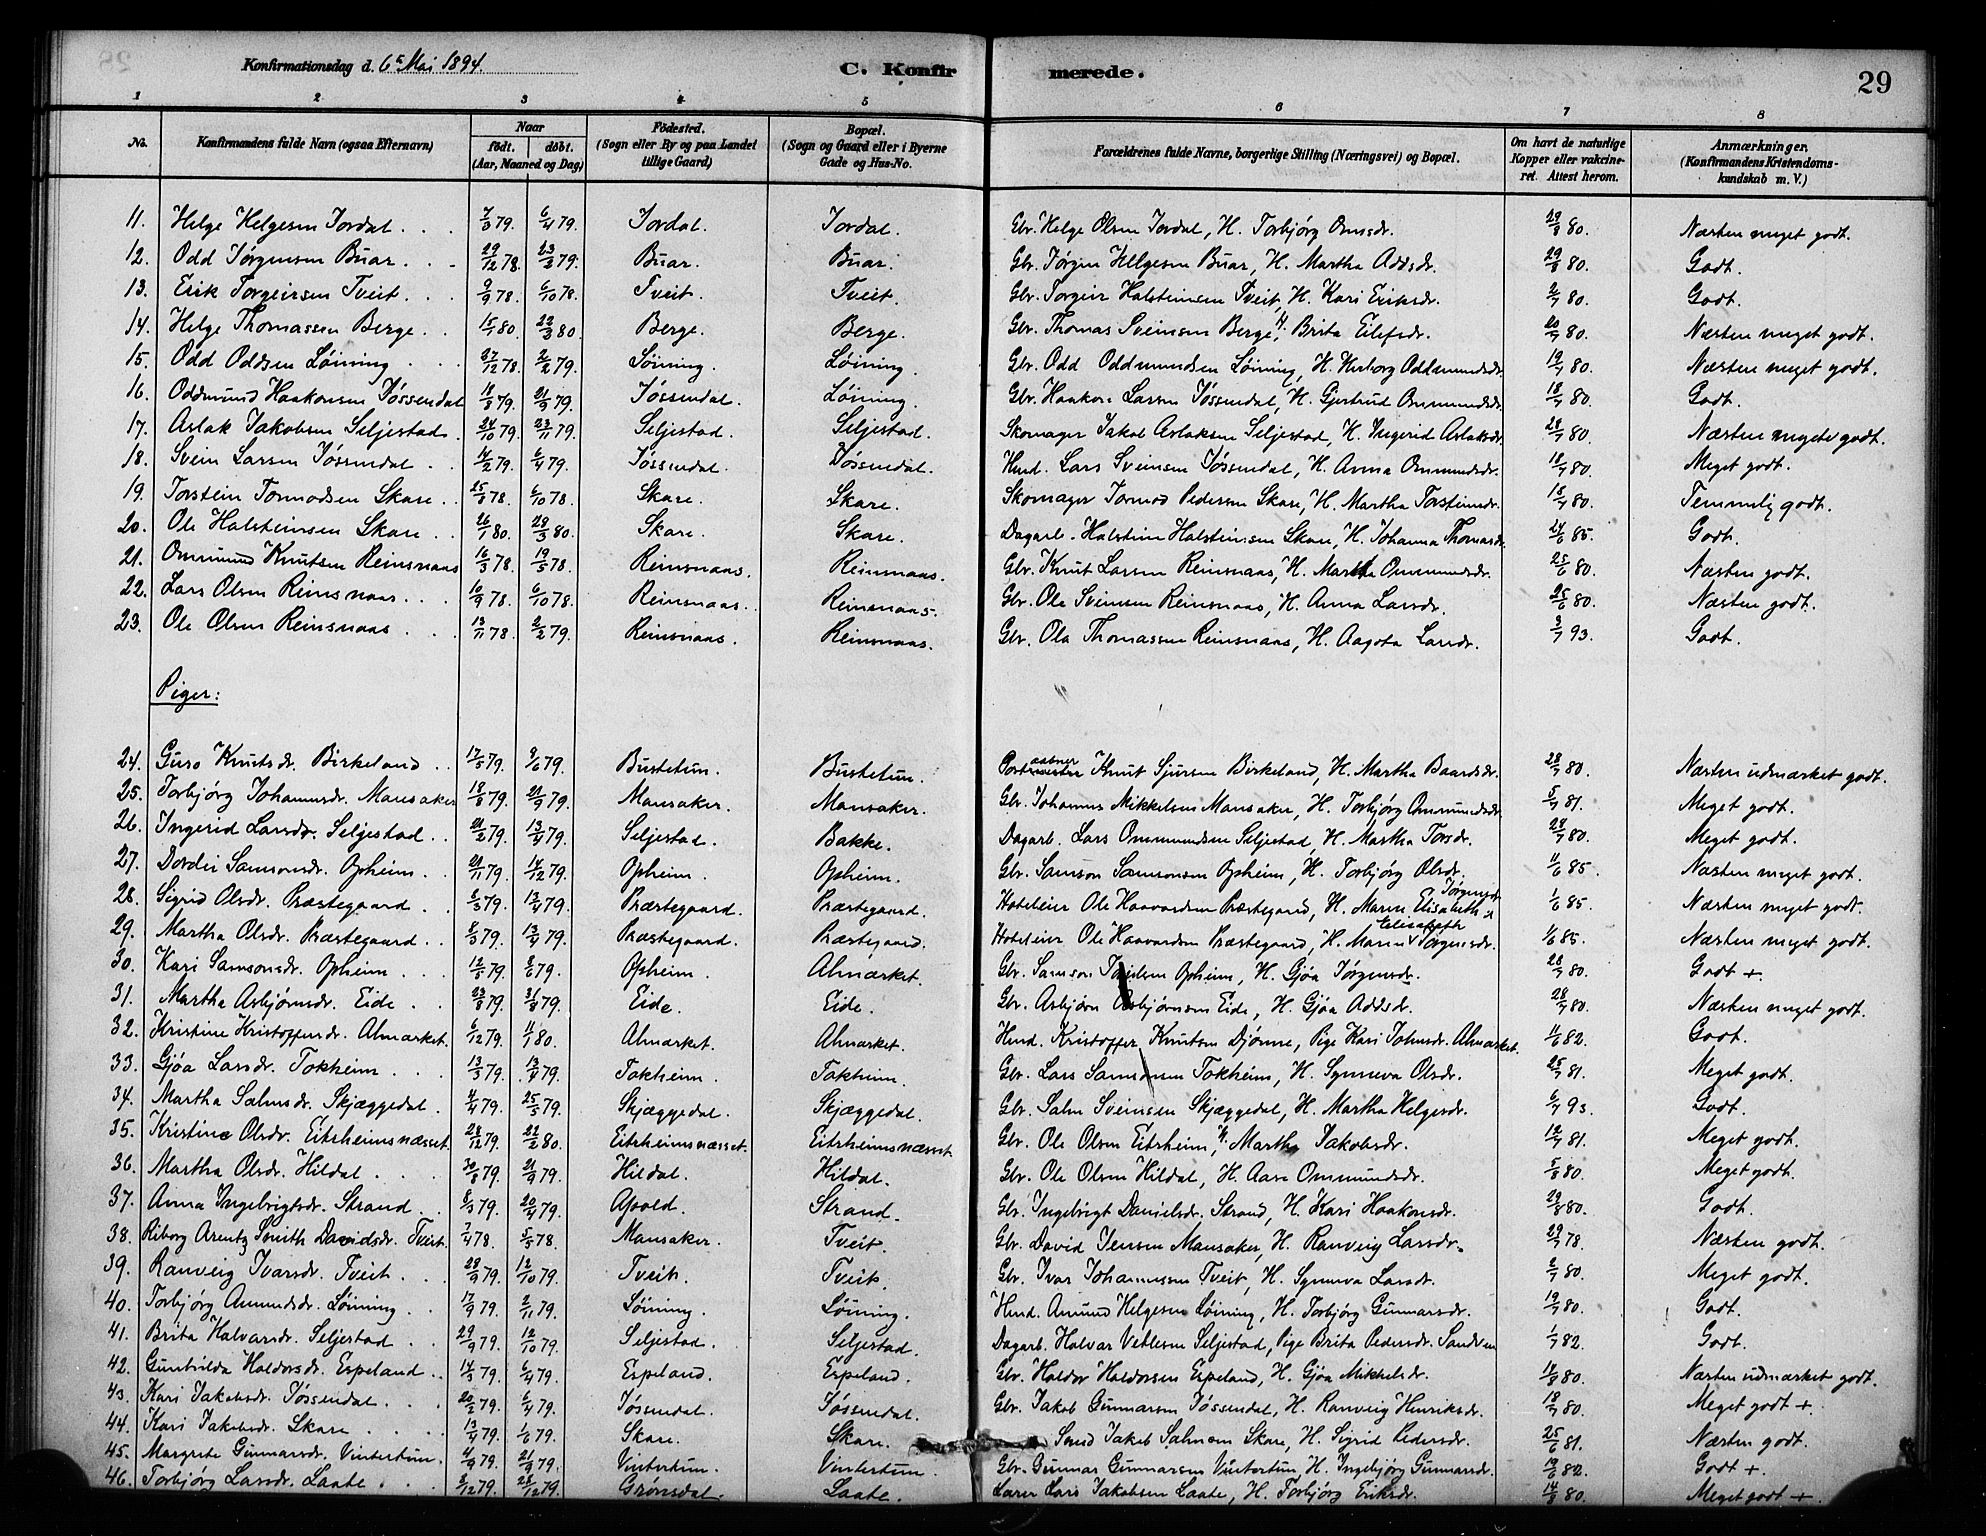 Konfirmationsdag d. 6te Mai 1894. C. Konfir merede. 29
1 2 3 4 5 6 7 8
No. Konfirmandens fulde Navn (ogsaa Efternavn) Naar födt. döbt. (Aar, Maaned og Dag) Födested. (Sogn eller By og paa Landet tillige Gaard) Bopæl. (Sogn og Gaard eller i Byerne Gade og Hus-No. Forældrenes fulde Navne, borgerlige Stilling (Næringsvei) og Bopæl. Om havt de naturlige Kopper eller vakcineret. Attest herom. Anmærkninger. (Konfirmandens Kristendomskundskab m. V.)
11. Helge Helgesen Jordal 7/3 79. 6/4 79. Jordal. Jordal. Gbr. Helge Olsen Jordal, H. Torbjörg Omsdr. 29/8 80. Næsten meget godt.
12. Odd Jørgensen Buar 29/12 78. 23/2 79. Buar. Buar. Gbr. Jørgen Helgesen Buar, H. Martha Addsdr. 29/8 80. Godt.
13. Erik Torgeirsen Tveit 9/9 78. 6/10 78. Tveit. Tveit. Gbr. Torgeir Halsteinsen Tveit, H. Kari Eriksdr. 2/7 80. Godt.
14. Helge Thomassen Berge 15/1 80. 22/3 80. Berge. Berge. Gbr. Thomas Sveinsen Berge, H. Brita Eilefsdr. 20/7 80. Næsten meget godt.
15. Odd Oddsen Løining 27/12 78. 2/2 79. Løining. Løining. Gbr. Odd Oddmundsen Løining, H. Herborg Oddmundsdr. 19/7 80. Næsten meget godt.
16. Oddmund Haakonsen Jøssendal 18/8 79. 21/9 79. Jøssendal. Løining. Gbr. Haakon Larsen Jøssendal, H. Gjertrud Ommundsdr. 18/7 80. Godt.
17. Aslak Jakobsen Seljestad 24/10 79. 23/11 79. Seljestad. Seljestad. Skomager Jakob Aslaksen Seljestad, H. Ingerid Aslaksdr. 28/7 80. Næsten meget godt.
18. Svein Larsen Jøssendal 4/2 79. 6/4 79. Jøssendal. Jøssendal. Hmd. Lars Sveinsen Jøssendal, H. Anna Ommundsdr. 18/7 80. Meget godt.
19. Torstein Tormodsen Skare 25/8 78. 6/10 78. Skare. Skare. Skomager Tormod Pedersen Skare, H. Martha Torsteinsdr. 18/7 80. Temmelig godt.
20. Ole Halsteinsen Skare 26/1 80. 28/3 80. Skare. Skare. Dagarb. Halstein Halsteinsen Skare, H. Johanna Thomasdr. 24/6 85. Godt.
21. Ommund Knutsen Reinsnaas 16/3 78. 19/5 78. Reinsnaas. Reinsnaas. Gbr. Knut Larsen Reinsnaas, H. Martha Ommundsdr. 25/6 80. Næsten godt.
22. Lars Olsen Reinsnaas 10/9 78. 6/10 78. Reinsnaas. Reinsnaas. Gbr. Ola Sveinsen Reinsnaas, H. Anna Larsdr. 25/6 80. Næsten godt.
23. Ole Olsen Reinsnaas 13/11 78. 2/2 79. Reinsnaas. Reinsnaas. Gbr. Ola Thomassen Reinsnaas, H. Aagota Larsdr. 3/7 93. Godt.
Piger:
24. Guro Knutsdr. Birkeland 17/5 79. 9/6 79. Bustetun. Bustetun. Postaabner Knut Sjursen Birkeland, H. Martha Baardsdr. 28/7 80. Næsten udmærket godt.
25. Torbjörg Johannesdr. Mansaker 18/8 79. 21/9 79. Mansaker. Mansaker. Gbr. Johannes Mikkelsen Mansaker, H. Torbjörg Ommundsdr. 5/7 81. Meget godt.
26. Ingerid Larsdr. Seljestad 21/2 79. 13/4 79. Seljestad. Bakke. Dagarb. Lars Ommundsen Seljestad, H. Martha Torsdr. 28/7 80. Meget godt.
27. Dordei Samsonsdr. Opheim 21/11 79. 14/12 79. Opheim. Opheim. Gbr. Samson Samsonsen Opheim, H. Torbjörg Olsdr. 11/6 85. Næsten meget godt.
28. Sigrid Olsdr. Præstegaard 8/3 79. 13/4 79. Præstegaard. Præstegaard. Hoteleier Ole Haavardsen Præstegaard, H. Maren Elisabeth Jørgensdr. 1/6 85. Næsten meget godt.
29. Martha Olsdr. Præstegaard 8/3 79. 13/4 79. Præstegaard. Præstegaard. Hoteleier Ole Haavardsen Præstegaard, H. Maren Elisabeth Jørgensdr. 1/6 85. Næsten meget godt.
30. Kari Samsonsdr. Opheim 12/5 79. 8/6 79. Opheim. Almærket. Gbr. Samson Opheim, H. Gjøa Jørgensdr. 28/7 80. Godt +
31. Martha Asbjörnsdr. Eide 23/8 79. 31/8 79. Eide. Eide. Gbr. Asbjörn Asbjörnsen Eide, H. Gjøa Addsdr. 28/7 80. Næsten meget godt.
32. Kristine Kristoffersdr. Almærket. 6/12 79. 11/1 80. Almærket. Almærket. Hmd. Kristoffer Knutsen Djønne, Pige Kari Johnsdr. Almærket. 11/6 82. Godt.
33. Gjøa Larsdr. Tokheim 13/3 79. 13/4 79. Tokheim. Tokheim. Gbr. Lars Samsonsen Tokheim, H. Synneva Olsdr. 25/7 81. Meget godt.
34. Martha Salmsdr. Skjæggedal 4/4 79. 25/5 79. Skjæggedal. Skjæggedal. Gbr. Salm Sveinsen Skjæggedal, H. Martha Helgesdr. 6/7 93. Godt.
35. Kristine Olsdr. Eitrheimsnæsset. 28/12 79. 22/2 80. Eitrheimsnæsset. Eitrheimsnæsset. Gbr. Ole Olsen Eitrheim, H. Martha Jakobsdr. 12/7 81. Meget godt.
36. Martha Olsdr. Hildal 30/8 79. 21/9 79. Hildal. Hildal. Gbr. Ole Olsen Hildal, H. Aasa Ommundsdr. 5/8 80. Meget godt.
37. Anna Ingebrigtsdr. Strand 8/3 79. 20/4 79. Apold. Strand. Gbr. Ingebrigt Danielsdr. Strand, H. Kari Haakonsdr. 29/8 80. Godt.
38. Riborg Arentz Smith Davidsdr. Tveit 7/4 78. 5/5 78. Mansaker. Tveit. Gbr. David Jensen Mansaker, H. Ranveig Larsdr. 29/7 78. Næsten godt.
39. Ranveig Ivarsdr. Tveit 28/9 79. 12/10 79. Tveit. Tveit. Gbr. Ivar Johannessen Tveit, H. Synneva Larsdr. 2/7 80. Meget godt.
40. Torbjörg Amundsdr. Løining 17/9 79. 2/11 79. Løining. Løining. Hmd. Amund Helgesen Løining, H. Torbjörg Gunnarsdr. 19/7 80. Godt.
41. Brita Halvarsdr. Seljestad 29/9 79. 12/10 79. Seljestad. Seljestad. Dagarb. Halvar Vetlesen Seljestad, Pige Brita Pedersdr. Sandven 1/7 82. Godt.
42. Gunhilda Haldorsdr. Espeland 14/3 79. 6/4 79. Espeland. Espeland. Gbr. Haldor Haldorsen Espeland, H. Gjøa Mikkelsdr. 14/8 80. Næsten udmærket godt.
43. Kari Jakobsdr. Jøssendal 20/2 79. 6/4 79. Jøssendal. Jøssendal. Gbr. Jakob Gunnarsen Jøssendal, H. Ranveig Henriksdr. 18/7 80. Meget godt +
44. Kari Jakobsdr. Skare 13/4 79. 1/6 79. Skare. Skare. Smed Jakob Salmsen Skare, H. Sigrid Pedersdr. 25/6 81. Næsten godt.
45. Margrete Gunnarsdr. Vintertun 4/9 79. 21/9 79. Vintertun. Vintertun. Gbr. Gunnar Gunnarsen Vintertun, H. Ingebjörg Gunnarsdr. 19/6 82. Godt +
46. Torbjörg Larsdr. Laate 8/12 79. 28/12 79. Grønsdal. Laate. Lærer Lars Jakobsen Laate, H. Torbjörg Eriksdr. 14/8 80. Meget godt +